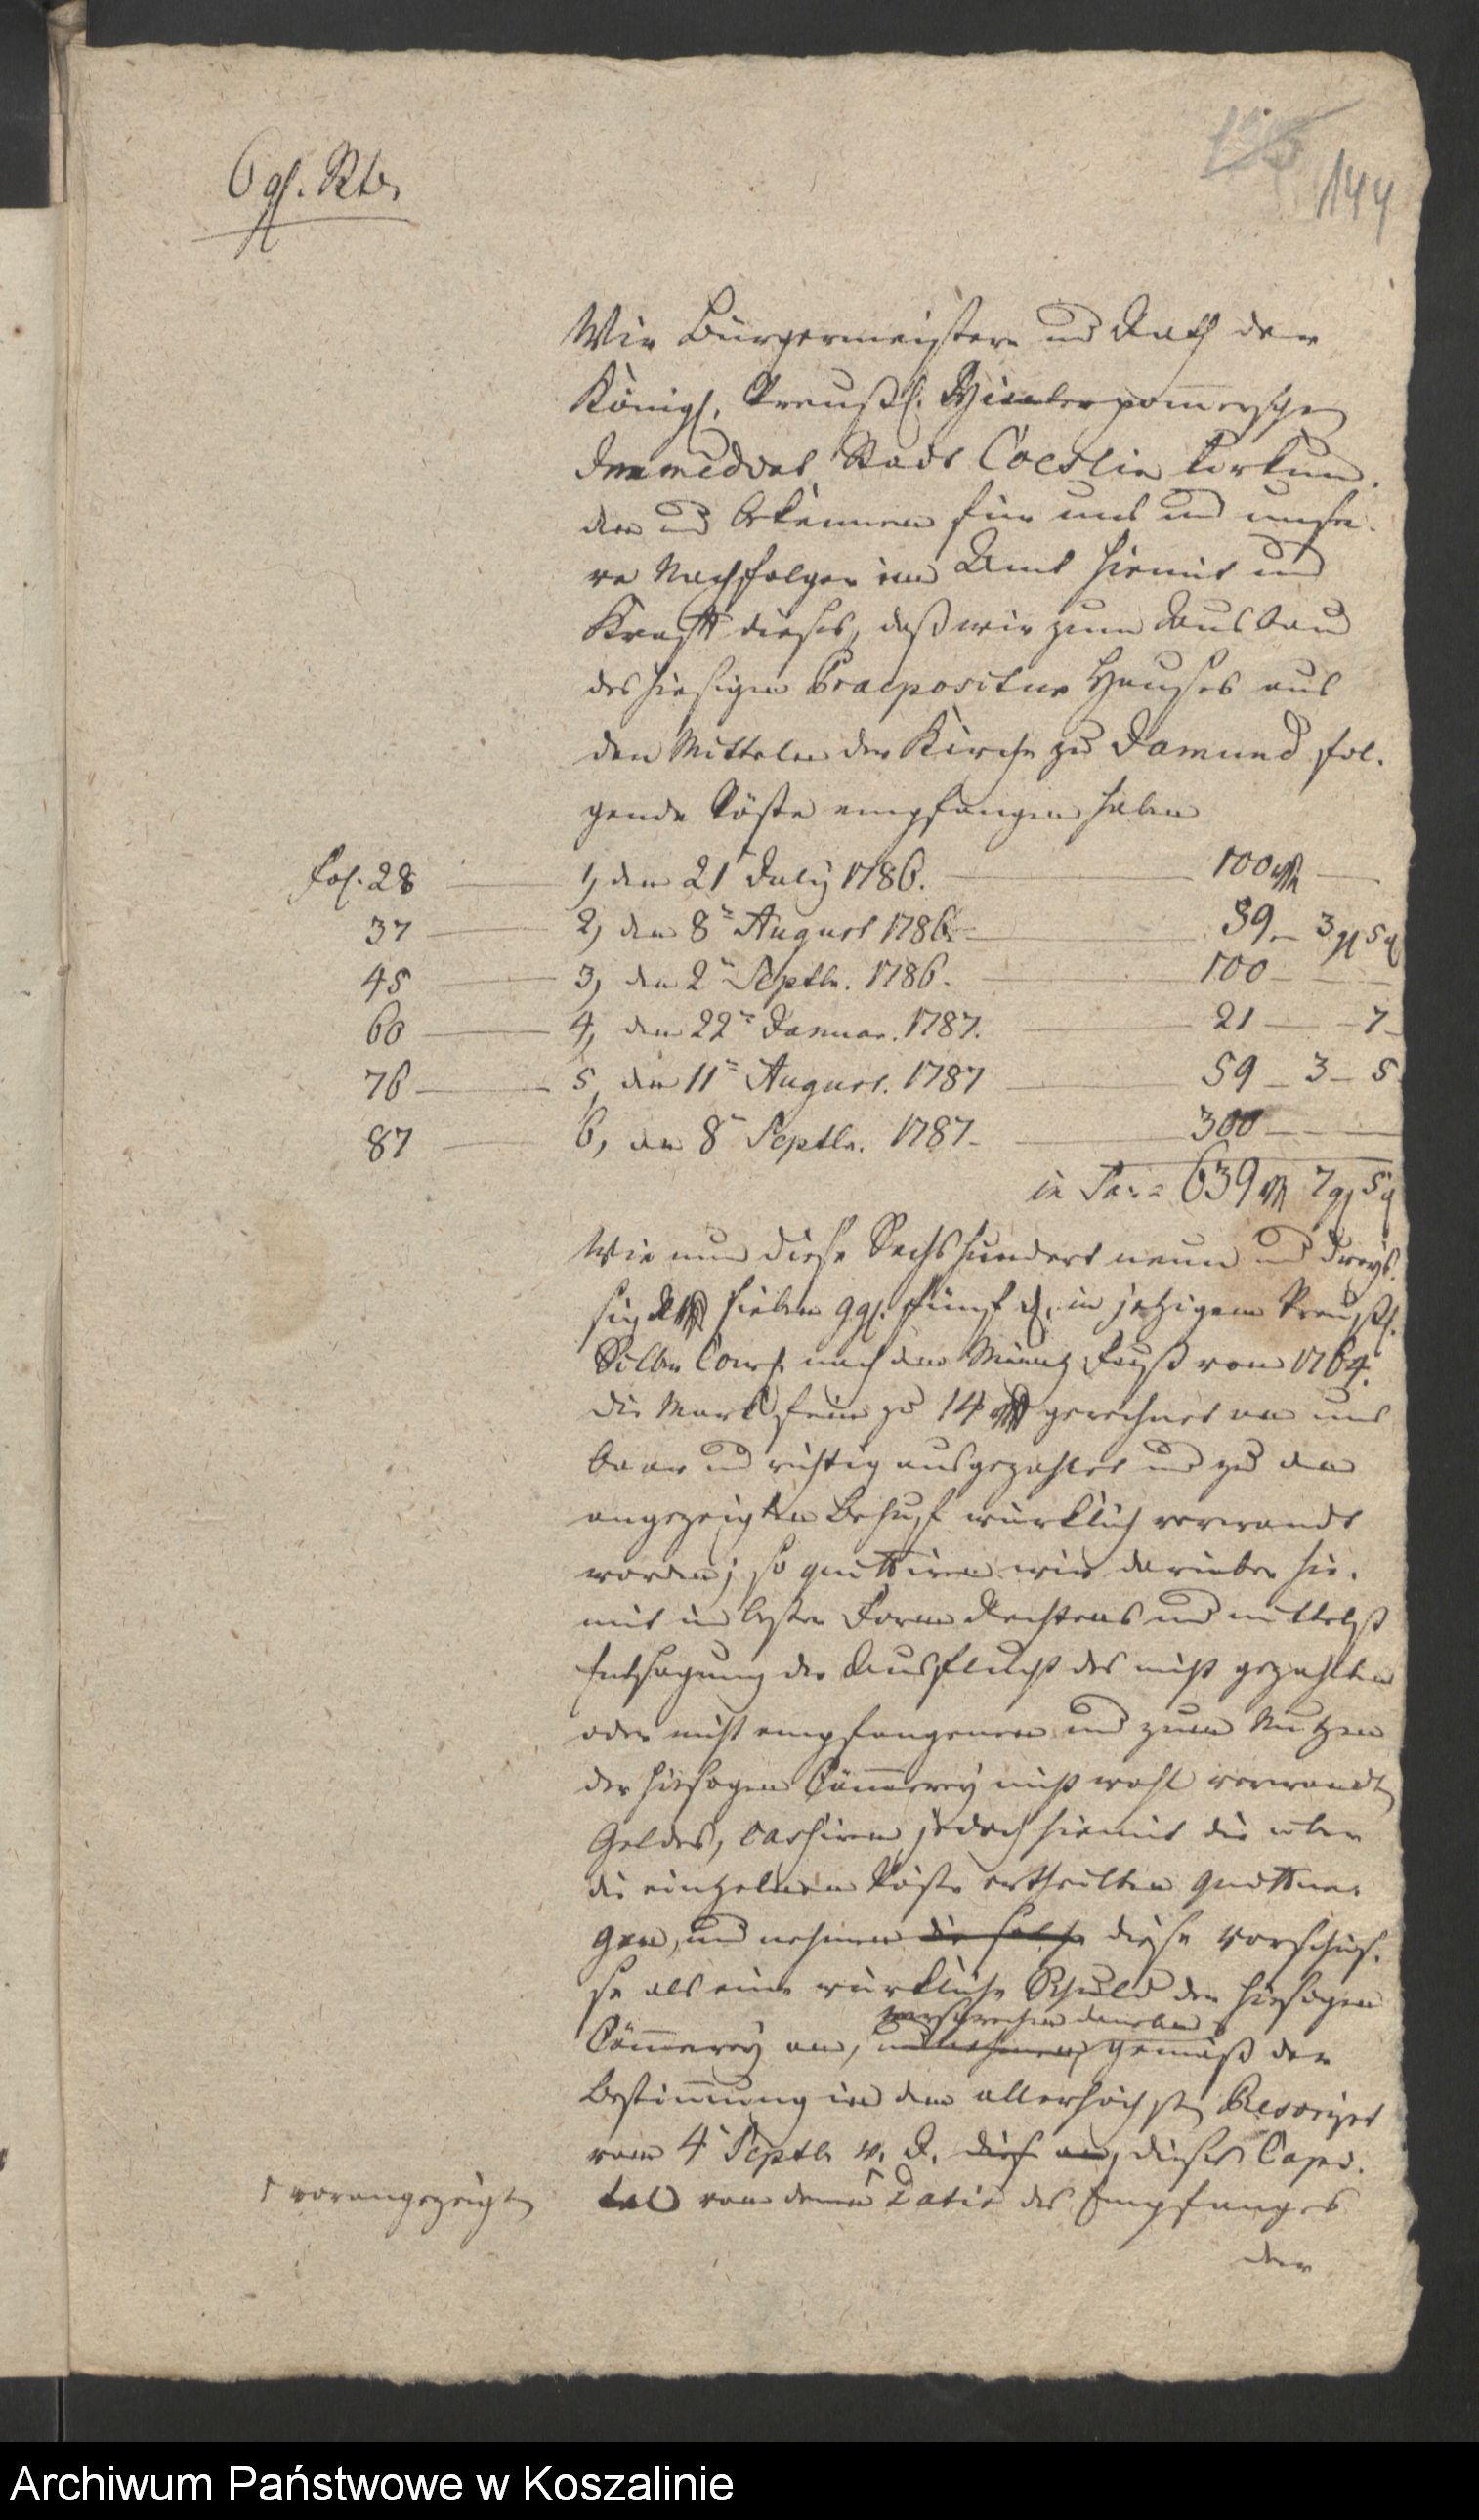 6 gl.
144
Wir Bürgermeistere und Rath der
Königl. Preußl. Hinterpommerschen
Immediat Stadt Coeslin Uhrkun-
den und bekennen für uns und unse-
re Nachfolger im Amt hiemit und
Kraft dieses, daß wir zum Ausbau
des hiesigen Praepositur Hauses aus
den Mitteln der Kirche zu Jamund fol-
gende Pöste empfangen haben
Fol. 28 1, den 21 July 1786. 100 rthl
37 2, den 8ten August 1786. 59 3 gl 5 d
45 3, den 2ten Septbr. 1786. 100
60 4, den 22ten Januar. 1787. 21 7
76 5, den 11ten August. 1787 59 3 5
87 6, den 8ten Septbr. 1787 300
in Sa. 639 rthl 7 gl 5 d
Wie nun diese Sechshundert neun und dreys-
sig Rthl sieben ggl. fünf d. in jetzigem Preußl.
Silber Cour. nach dem Müntz Fuß vom 1764.
die Mark fein zu 14 rthl gerechnet an uns
baar und richtig ausgezahlet und zu dem
angezeigten Behuf würklich verwandt
worden; so quittiren wir darüber hie-
mit in bester Form Rechtens und mittelst
Entsagung der Ausflucht des nicht gezahlten
oder nicht empfangenen und zum Nutzen
der hiesigen Cämmerey nicht wohl verwandten
Geldes, cassiren jedoch hiemit die über
die einzelnen Pöste ertheilten Quittun-
gen, und nehmen diese Vorschüs-
se als eine würkliche Schuld der hiesigen
versprechen daneben
Cämmerey an, und nehmen gemäß der
Bestimmung in dem allerhöchsten Rescript
vom 4 Septbr v. J. dieses Capi-
vorangezeigten tal von denen Datis des Empfanges
der
Archiwum Państwowe w Koszalinie